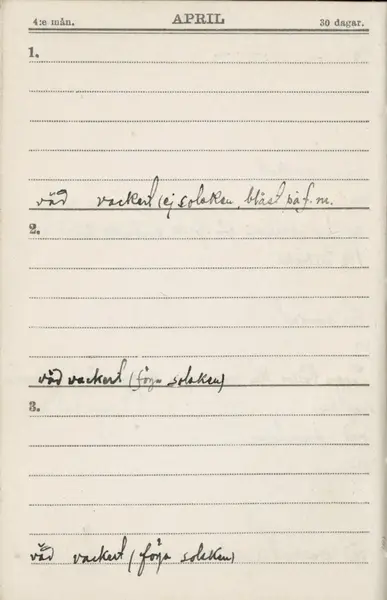 4:e mån. APRIL 30 dagar.
1.
väd vackert (ej solsken, bläst på f.m.
2.
väd vackert (föga solsken)
3.
väd vackert (föga solsken)